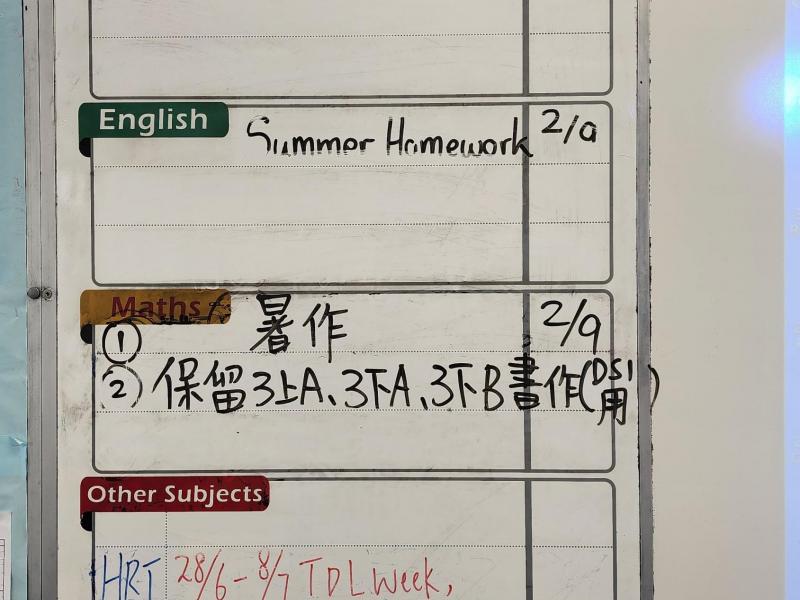 English Summer Homework 2/9
Maths
① 暑作 2/9
② 保留3上A、3下A、3下B書作(DS1用)
Other Subjects
HRT 28/6-8/7 TDL Week,